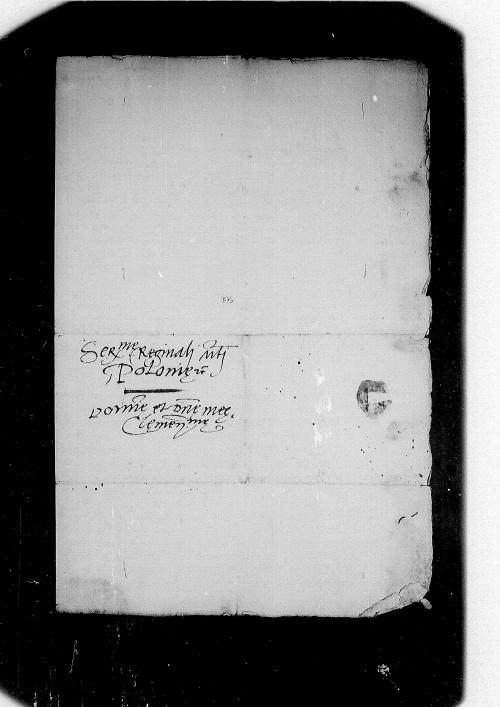 Ser^me Reginali Mti
Poloniae
Domine et Dne mee
Clemen^me